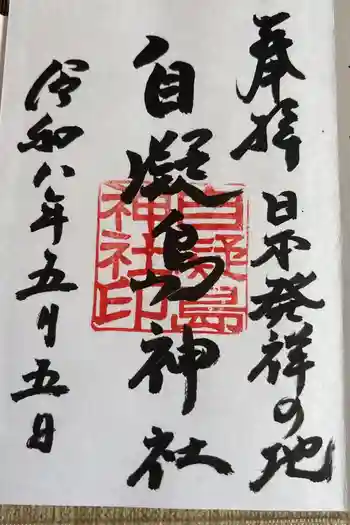 奉拝 日本発祥の地
自凝島神社
自凝島
神社印
令和八年五月五日